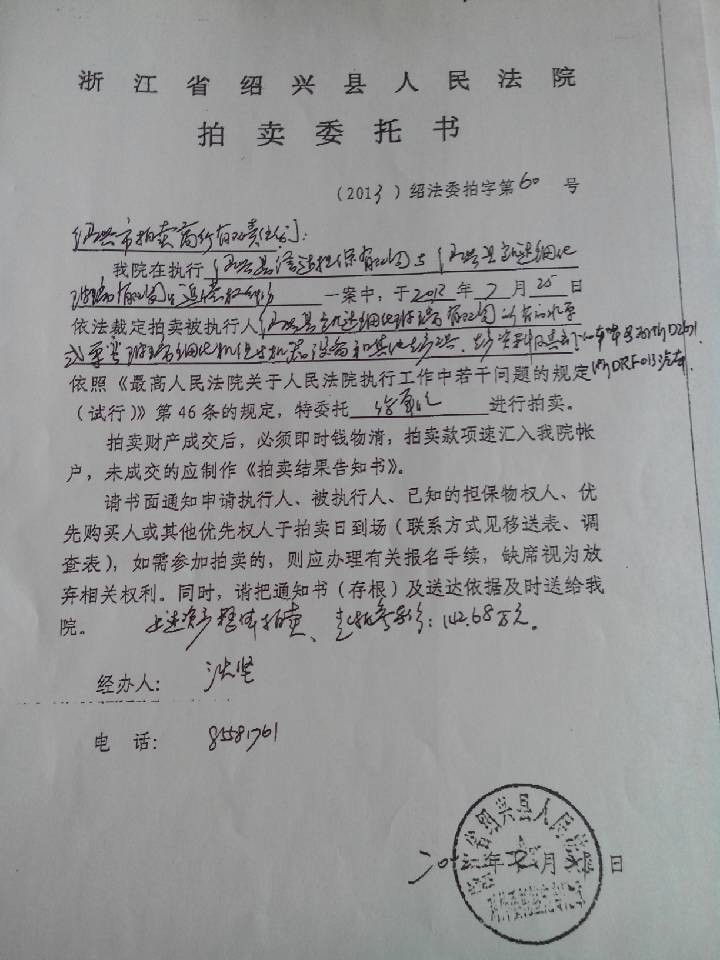 浙江省绍兴县人民法院
拍卖委托书
（2013）绍法委拍字第60号
绍兴市拍卖商行有限责任公司：
我院在执行绍兴县 担保有限公司与绍兴县
有限公司 追偿权纠纷一案中，于2013年7月25日
依法裁定拍卖被执行人绍兴县 有限公司所有的
机器设备和其他
依照《最高人民法院关于人民法院执行工作中若干问题的规定
（试行）》第46条的规定，特委托 进行拍卖。
拍卖财产成交后，必须即时钱物清，拍卖款项速汇入我院帐
户，未成交的应制作《拍卖结果告知书》。
请书面通知申请执行人、被执行人、已知的担保物权人、优
先购买人或其他优先权人于拍卖日到场（联系方式见移送表、调
查表），如需参加拍卖的，则应办理有关报名手续，缺席视为放
弃相关权利。同时，请把通知书（存根）及送达依据及时送给我
院。 上述资产整体拍卖、起拍参考价：142.68万元。
经办人：
电 话：85581761
年 月 日
浙江省绍兴县人民法院